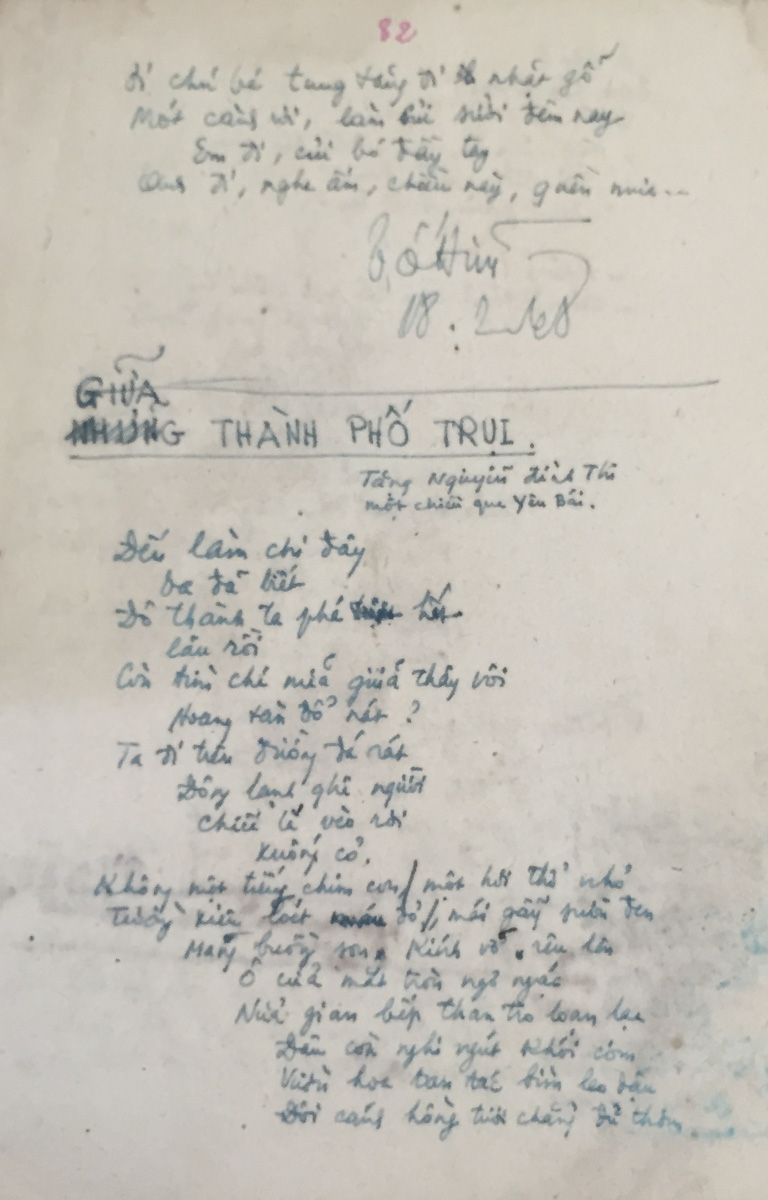 82
Đi chú bé tung tăng đi nhặt gỗ
Một cành củi, làm củi sưởi đêm nay
Em đi, củi bó đầy tay
Anh đi, nghe ấm, chiều nay, quên mưa...
18.2.48
GIỮA
NHỮNG THÀNH PHỐ TRỤI.
Tặng Nguyễn Đình Thi
một chiều qua Yên Bái.
Đến làm chi đây
Đã biết
Đô thành ta phá hết
lâu rồi
Còn tìm chi nữa giữa thây vôi
Hoang tàn đổ nát?
Ta đi trên đường đá rát
Đông lạnh ghê người
Chiều lê vèo rơi
Xuống cỏ.
Không một tiếng chim con / một hơi thở nhỏ
Tường xiêu loét đỏ / mái gẫy sườn đen
Mảng buồng son, Kính vỡ, rêu lên
Ô cửa mắt tròn ngơ ngác
Nửa gian bếp than tro loan lạc
Dấu còn nghi ngút khói cơm
Vườn hoa tan tác bìm leo dậu
Đôi cành hồng tươi chẳng đủ thơm